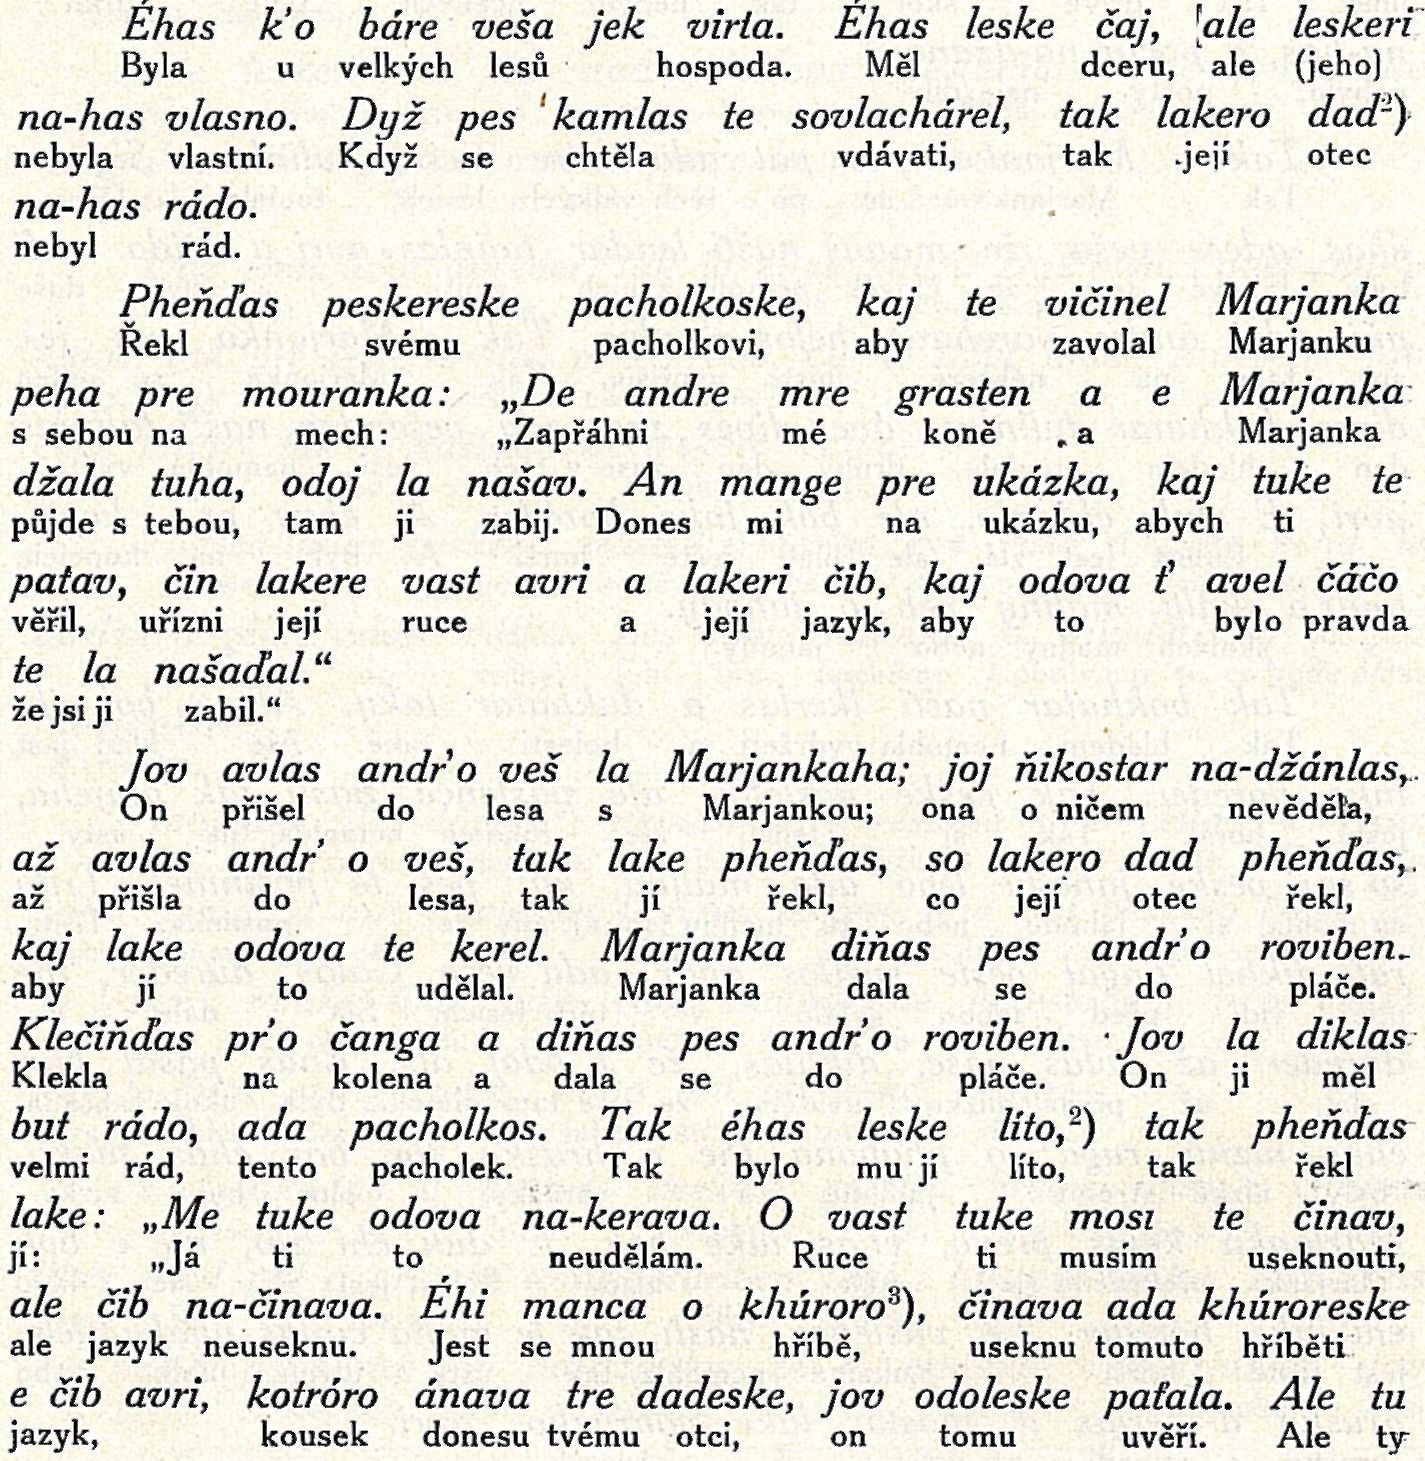 Éhas k’o báre veša jek virta. Éhas leske čaj, ale leskeri
Byla u velkých lesů hospoda. Měl dceru, ale (jeho)
na-has vlasno. Dyž pes kamlas te sovlachárel, tak lakero dad²)
nebyla vlastní. Když se chtěla vdávati, tak její otec
na-has rádo.
nebyl rád.
Pheňďas peskereske pacholkoske, kaj te vičinel Marjanka
Řekl svému pacholkovi, aby zavolal Marjanku
peha pre mouranka: „De andre mre grasten a e Marjanka
s sebou na mech: „Zapřáhni mé koně a Marjanka
džala tuha, odoj la našav. An mange pre ukázka, kaj tuke te
půjde s tebou, tam ji zabij. Dones mi na ukázku, abych ti
paťav, čin lakere vast avri a lakeri čib, kaj odova ť avel čáčo
věřil, uřízni její ruce a její jazyk, aby to bylo pravda
te la našaďal.“
že jsi ji zabil.“
Jov avlas andr’o veš la Marjankaha; joj ňikostar na-džánlas,
On přišel do lesa s Marjankou; ona o ničem nevěděla,
až avlas andr’ o veš, tak lake pheňďas, so lakero dad pheňďas,
až přišla do lesa, tak jí řekl, co její otec řekl,
kaj lake odova te kerel. Marjanka diňas pes andr’o roviben.
aby jí to udělal. Marjanka dala se do pláče.
Klečiňďas pr’o čanga a diňas pes andr’o roviben. Jov la diklas
Klekla na kolena a dala se do pláče. On ji měl
but rádo, ada pacholkos. Tak éhas leske líto,²) tak pheňďas
velmi rád, tento pacholek. Tak bylo mu jí líto, tak řekl
lake: „Me tuke odova na-kerava. O vast tuke mosı te činav,
jí: „Já ti to neudělám. Ruce ti musím useknouti,
ale čib na-činava. Éhi manca o khúroro³), činava ada khúroreske
ale jazyk neuseknu. Jest se mnou hříbě, useknu tomuto hříběti
e čib avri, kotróro ánava tre dadeske, jov odoleske paťala. Ale tu
jazyk, kousek donesu tvému otci, on tomu uvěří. Ale ty